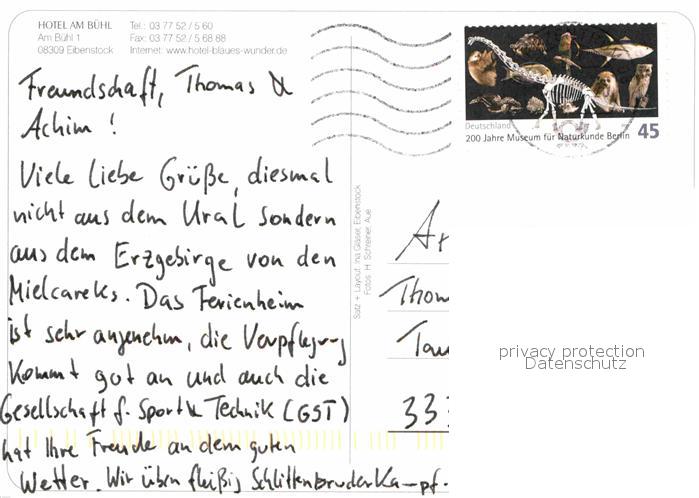 HOTEL AM BÜHL
Am Bühl 1
08309 Eibenstock
Tel.: 03 77 52 / 5 60
Fax: 03 77 52 / 5 68 88
Internet: www.hotel-blaues-wunder.de
Freundschaft, Thomas &
Achim!
Viele liebe Grüße, diesmal
nicht aus dem Ural sondern
aus dem Erzgebirge von den
Mielcareks. Das Ferienheim
ist sehr angenehm, die Verpflegung
kommt gut an und auch die
Gesellschaft f. Sport & Technik (GST)
hat Ihre Freude an dem guten
Wetter. Wir üben fleißig Schlittenbruderkampf.
Satz + Layout: Ina Gläser, Eibenstock
Fotos: H. Schreiner, Aue
Deutschland
200 Jahre Museum für Naturkunde Berlin 45
Ar
Thom
Tau
33
privacy protection
Datenschutz